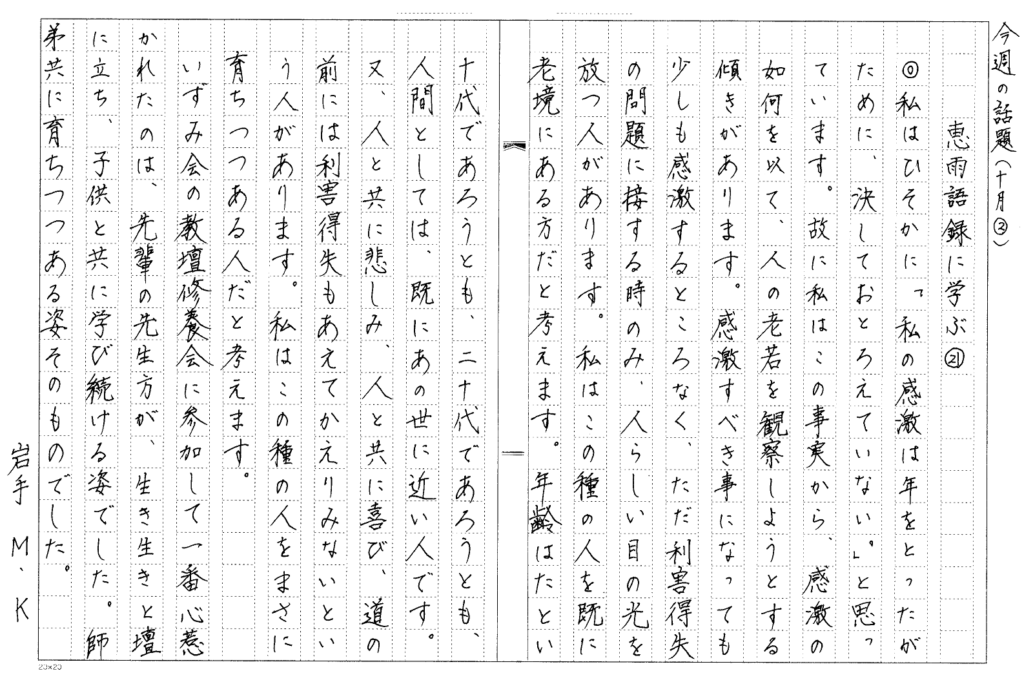 今週の話題(十月②)
恵雨語録に学ぶ㉑
◎私はひそかに「私の感激は年をとったが
ために、決しておとろえていない。」と思っ
ています。故に私はこの事実から、感激の
如何を以て、人の老若を観察しようとする
傾きがあります。感激すべき事になっても
少しも感激するところなく、ただ利害得失
の問題に接する時のみ、人らしい目の光を
放つ人があります。私はこの種の人を既に
老境にある方だと考えます。年齢はたとい
十代であろうとも、二十代であろうとも、
人間としては、既にあの世に近い人です。
又、人と共に悲しみ、人と共に喜び、道の
前には利害得失もあえてかえりみないとい
う人があります。私はこの種の人をまさに
育ちつつある人だと考えます。
いずみ会の教壇修養会に参加して一番心惹
かれたのは、先輩の先生方が、生き生きと壇
に立ち、子供と共に学び続ける姿でした。師
弟共に育ちつつある姿そのものでした。
岩手 M.K
20×20